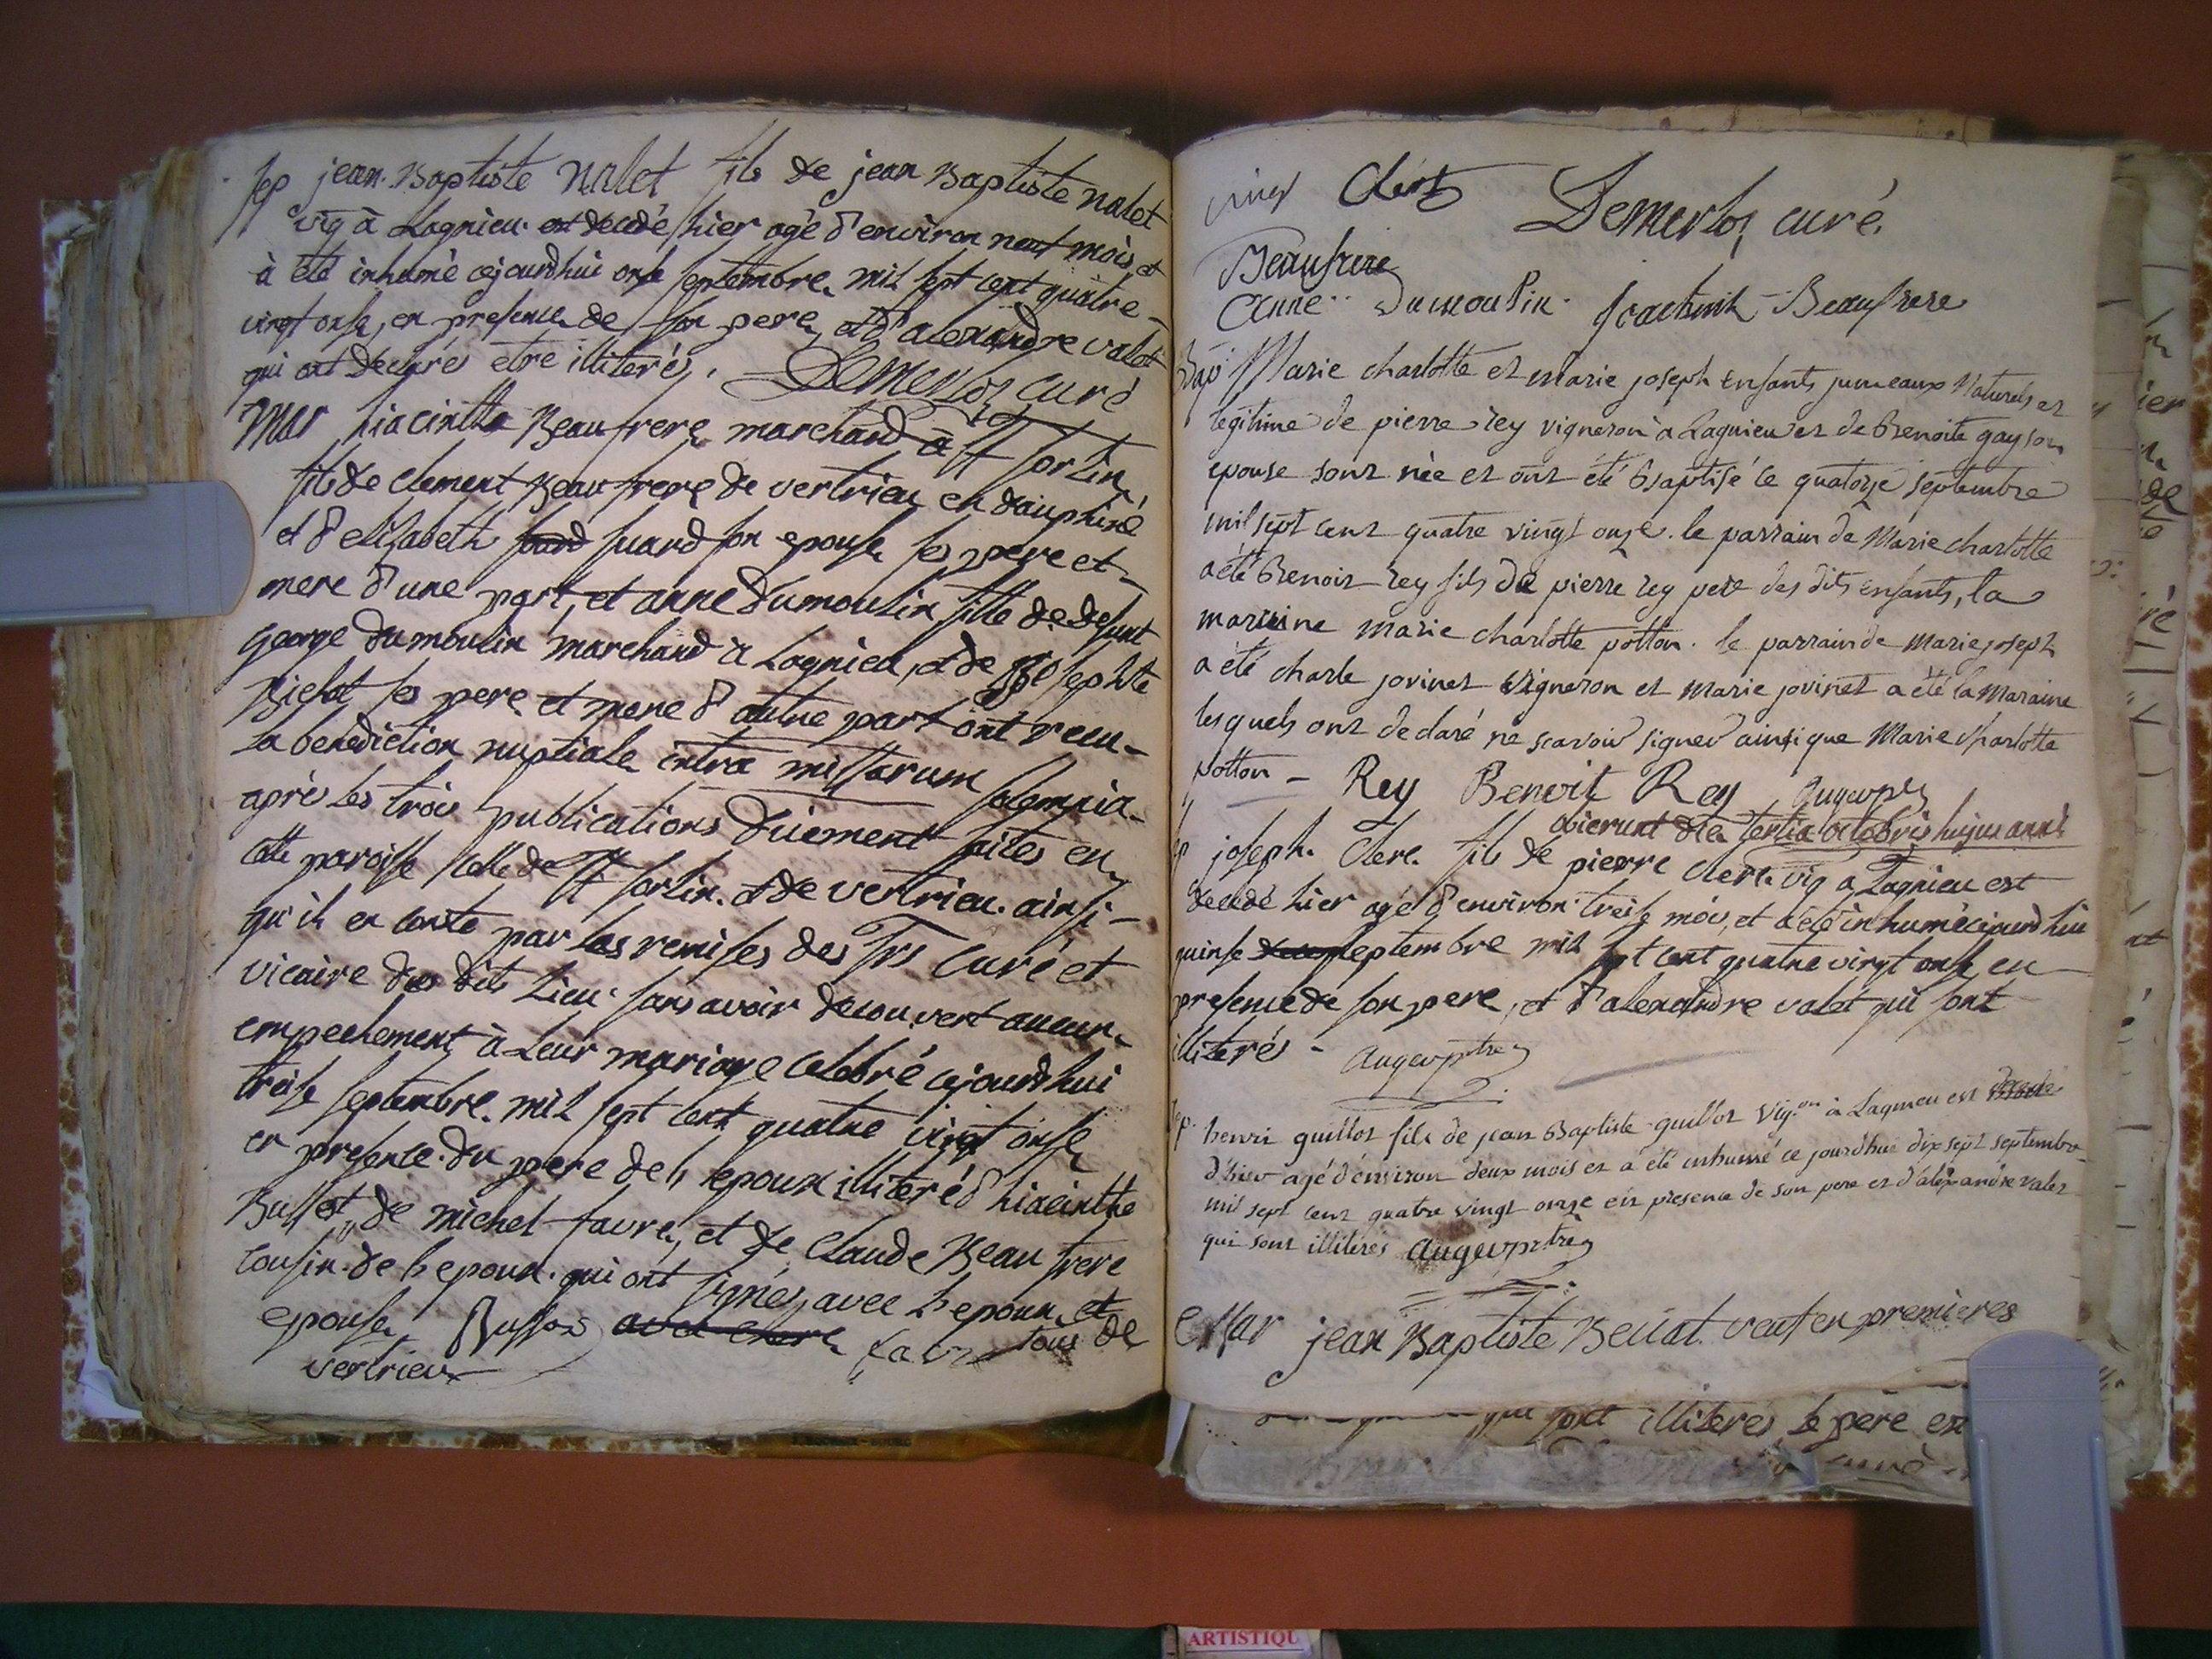 sep jean Baptiste Nalet fils de jean Baptiste nalet
vig à Lagnieu est decedé hier agé d'environ neuf mois et
à été inhumé cejourdhui onse septembre mil sept cent quatre-
vingt onse, en presence de son pere, et d'alexandre valet
qui ont declarés etre illiterés. Demerloz curé
Mar hiacinthe Beaufrere marchand à St Sorlin
fils de clement Beaufrere de vertrieu en dauphiné
et d'elisabeth suard son epouse ses pere et-
mere d'une part, et anne dumoulin fille de defunt
george dumoulin marchand à Lagnieu, et de josephte
Bichot ses pere et mere d'autre part ont recu-
la benediction nuptiale intra missarum solemnia-
après les trois publications duement faites en
cette paroisse celle de St Sorlin et de vertrieu ainsi-
qu'il en conste par les remises des Srs curé et
vicaire des dits Lieu sans avoir decouvert aucun
empechement à Leur mariage celebré cejourdhui
treise septembre mil sept cent quatre vingt onse
en presence du pere de l'epoux illiteré d'hiacinthe
Bussot de michel favre, et de Claude Beaufrere
cousin de l'epoux qui ont signés avec l'epoux et
epouse Bussod avec favre tous de
vertrieu
Demerloz curé
Beaufrere
Anne Dumoulin Beaufrere
Bap Marie charlotte et marie joseph Enfants jumeaux Naturels et
legitime de pierre rey vigneron à Lagnieu et de Benoite gay son
epouse sont née et ont été Baptisé le quatorze septembre
mil sept cent quatre vingt onze. le parrain de Marie charlotte
a été Benoit rey fils de pierre rey pere des dits enfants, la
maraine marie charlotte potton. le parrain de Marie joseph
a été charle jovinet vigneron et marie jovinet a été la maraine
les quels ont declaré ne scavoir signer ainsi que Marie charlotte
potton - Rey Benoit Rey
obierunt die tertia octobris hujus anni
joseph Clerc fils de pierre clerc vig a Lagnieu est
decedé hier agé d'environ treise mois, et a été inhumé cejourdhui
quinse septembre mil sept cent quatre vingt onse en
presence de son pere, et d'alexandre valet qui sont
illiterés - augerptre
sep. henri guillot fils de jean Baptiste guillot vig.on à Lagnieu est decedé
d'hier agé d'environ deux mois et a été inhumé ce jourd'hui dix sept septembre
mil sept cent quatre vingt onze en presence de son pere et d'alexandre valet
qui sont illiterés augerptre
Mar jean Baptiste Beilat veuf en premieres
qui sont illiteres le père en
ARTISTIQU